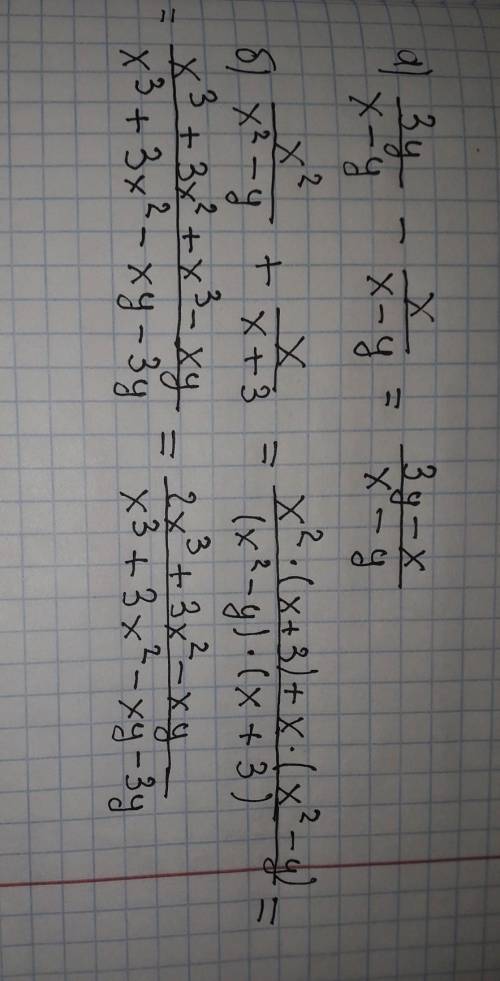 а) 3y/(x-y) - x/(x-y) = (3y-x)/(x-y)
б) x²/(x²-y) + x/(x+3) = (x²·(x+3)+x·(x²-y))/((x²-y)·(x+3)) =
= (x³+3x²+x³-xy)/(x³+3x²-xy-3y) = (2x³+3x²-xy)/(x³+3x²-xy-3y)